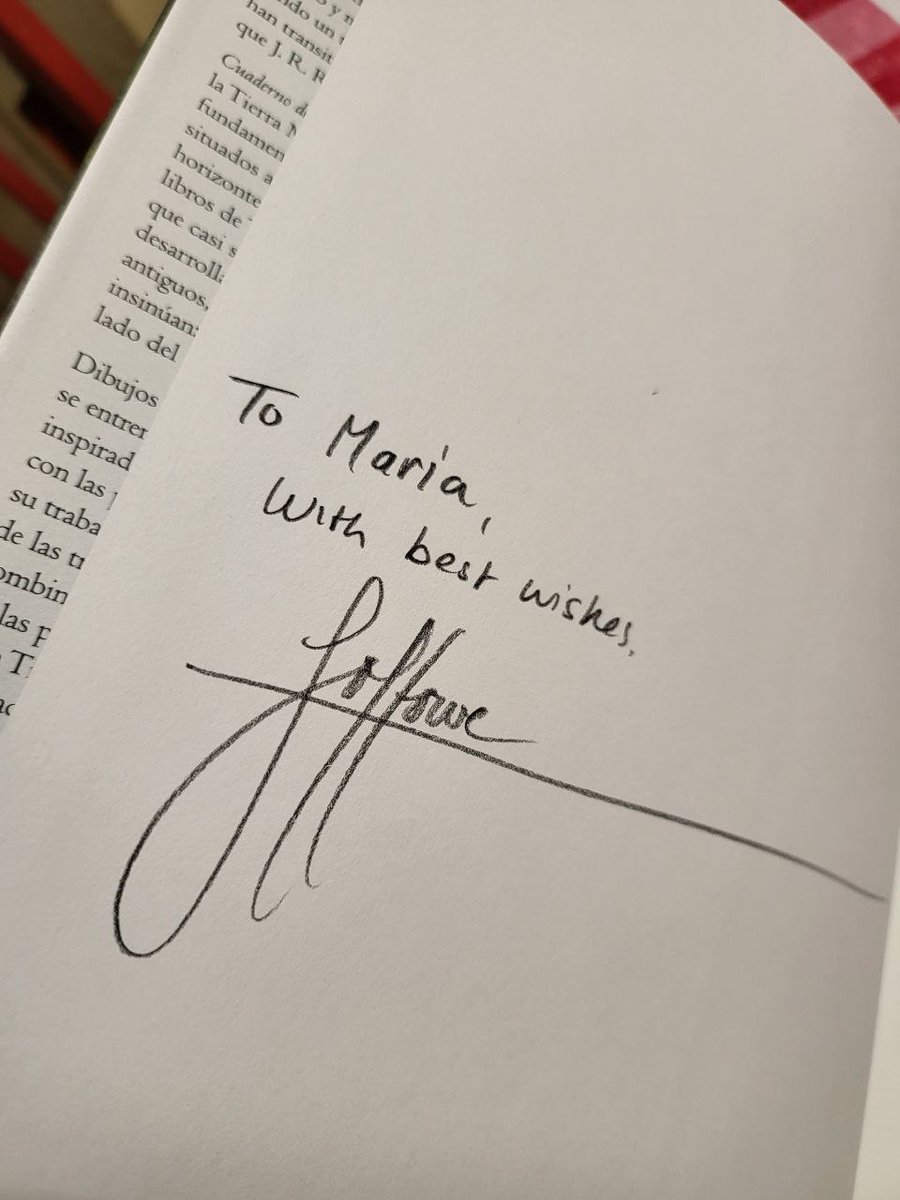 o y n
ndo un
han transit
que J. R. R
Cuaderno d
la Tierra M
fundamen
situados a
horizonte
libros de
que casi s
desarroll
antiguos,
insinúan
lado del
Dibujos
se entrer
inspirad
con las
su traba
de las tr
ombin
las p
T
To Maria,
With best wishes,